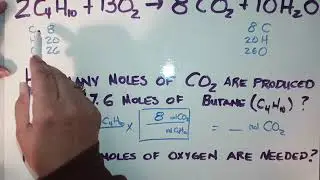 2C4H10 + 13O2 → 8CO2 + 10H2O
C 8 8 C
H 20 20 H
26 26 O
MANY MOLES OF CO2 ARE PRODUCED
7.6 MOLES OF BUTANE (C4H10)?
C4H10 × 8 mol CO2 = _ mol CO2
mol C4H10
MOLES OF OXYGEN ARE NEEDED?